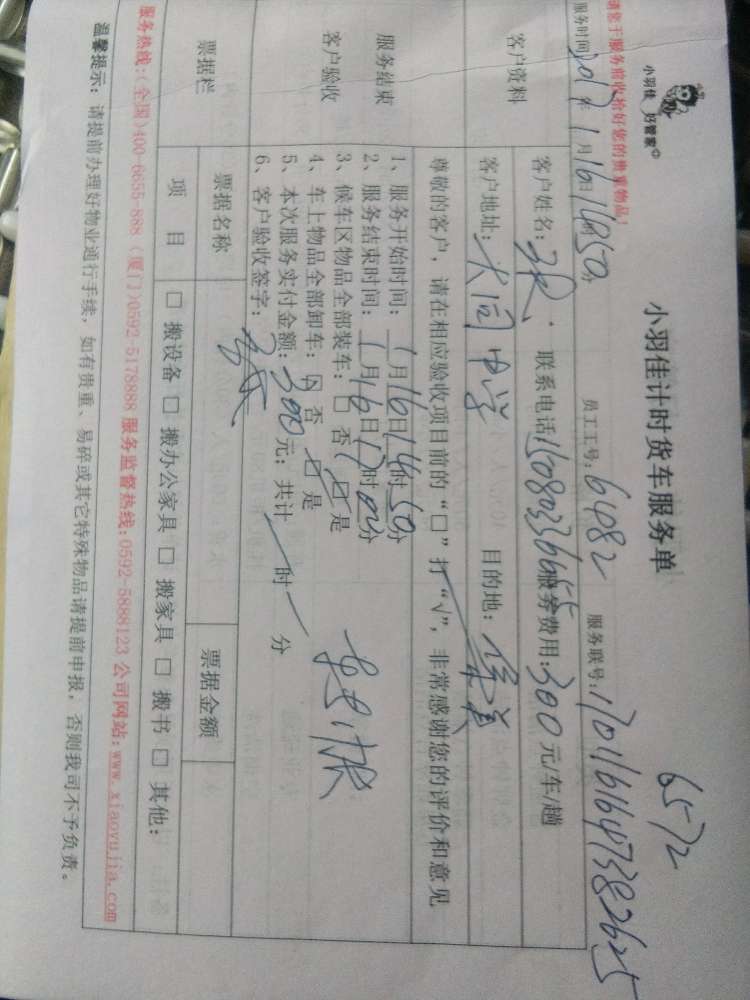 小羽佳 好管家
小羽佳计时货车服务单
6572
请您于服务前收拾好您的贵重物品!
服务时间 2017年1月16日14时50分 员工工号: 6482 服务联号: 1701161647382625
客户资料
客户姓名: 张 联系电话 15080336655 服务费用: 300元/车/趟
客户地址: 大同中学 目的地:
尊敬的客户, 请在相应验收项目前的“□”打“√”, 非常感谢您的评价和意见
服务结束
客户验收
1、服务开始时间: 1月16日14时50分
2、服务结束时间: 1月16日17时02分
3、候车区物品全部装车: □ 否 □ 是
4、车上物品全部卸车: □ 否 □ 是
5、本次服务实付金额: 300元; 共计 / 时 / 分
6、客户验收签字:
票据栏
票据名称 票据金额
项 目 □ 搬设备 □ 搬办公家具 □ 搬家具 □ 搬书 □ 其他:
服务热线: (全国)400-6655-888 (厦门)0592-5178888 服务监督热线: 0592-5888123 公司网站: www.xiaoyujia.com
温馨提示: 请提前办理好物业通行手续, 如有贵重、易碎或其它特殊物品请提前申报, 否则我司不予负责。